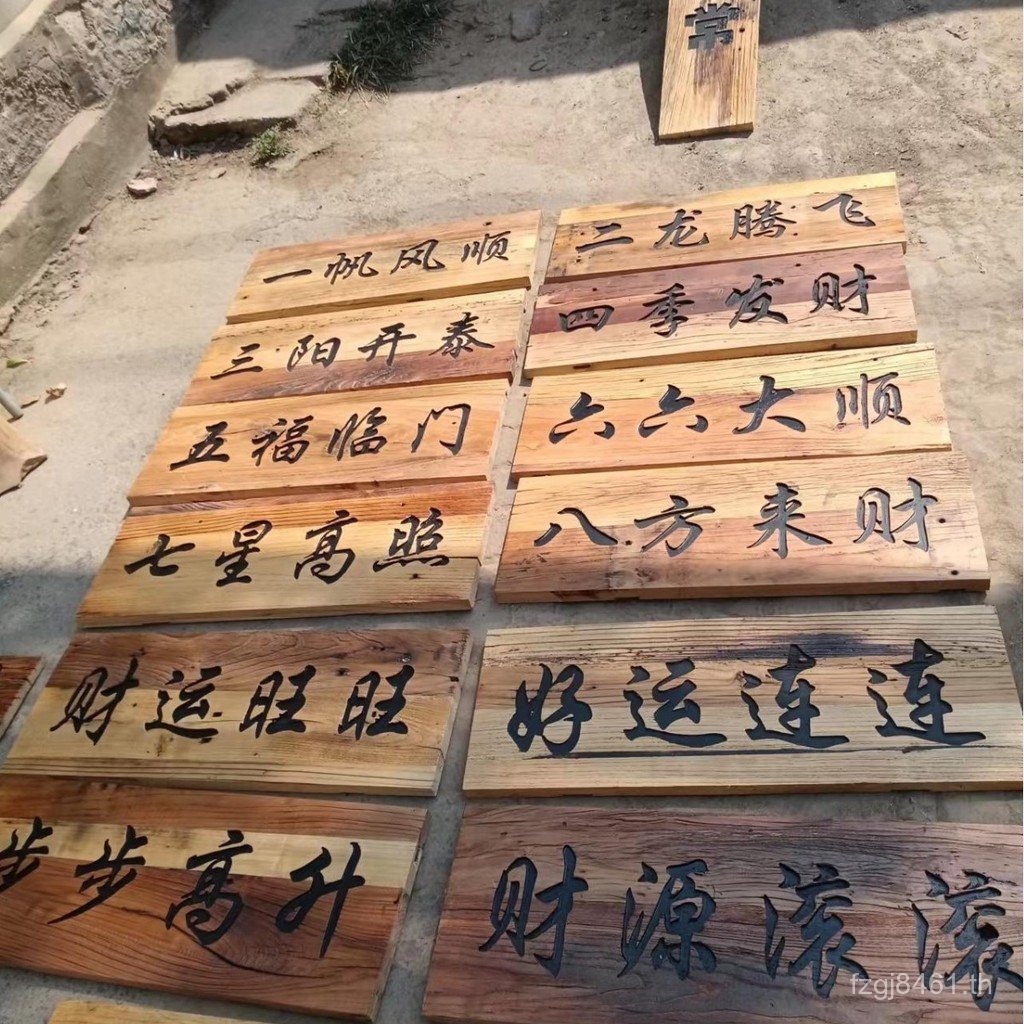 常
一帆风顺
二龙腾飞
三阳开泰
四季发财
五福临门
六六大顺
七星高照
八方来财
财运旺旺
好运连连
步步高升
财源滚滚
fzgj8461.th